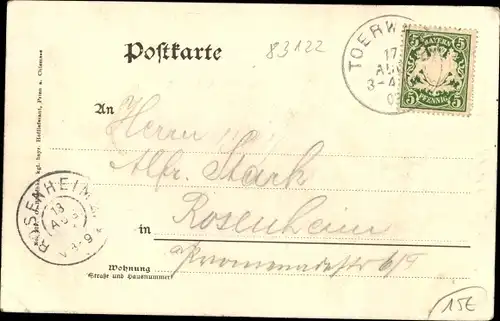 Postkarte
83122
TOERW
17
AUG
3-4
BAYERN
5 5
PFENNIG
An
Herrn
Alfr. Stark
Rosenheim
in Promenadestr 6/I
Wohnung
(Straße und Hausnummer)
ROSENHEIM
18
AUG
V. 8-9
kgl. bayr. Hoflieferant, Prien a. Chiemsee
15€